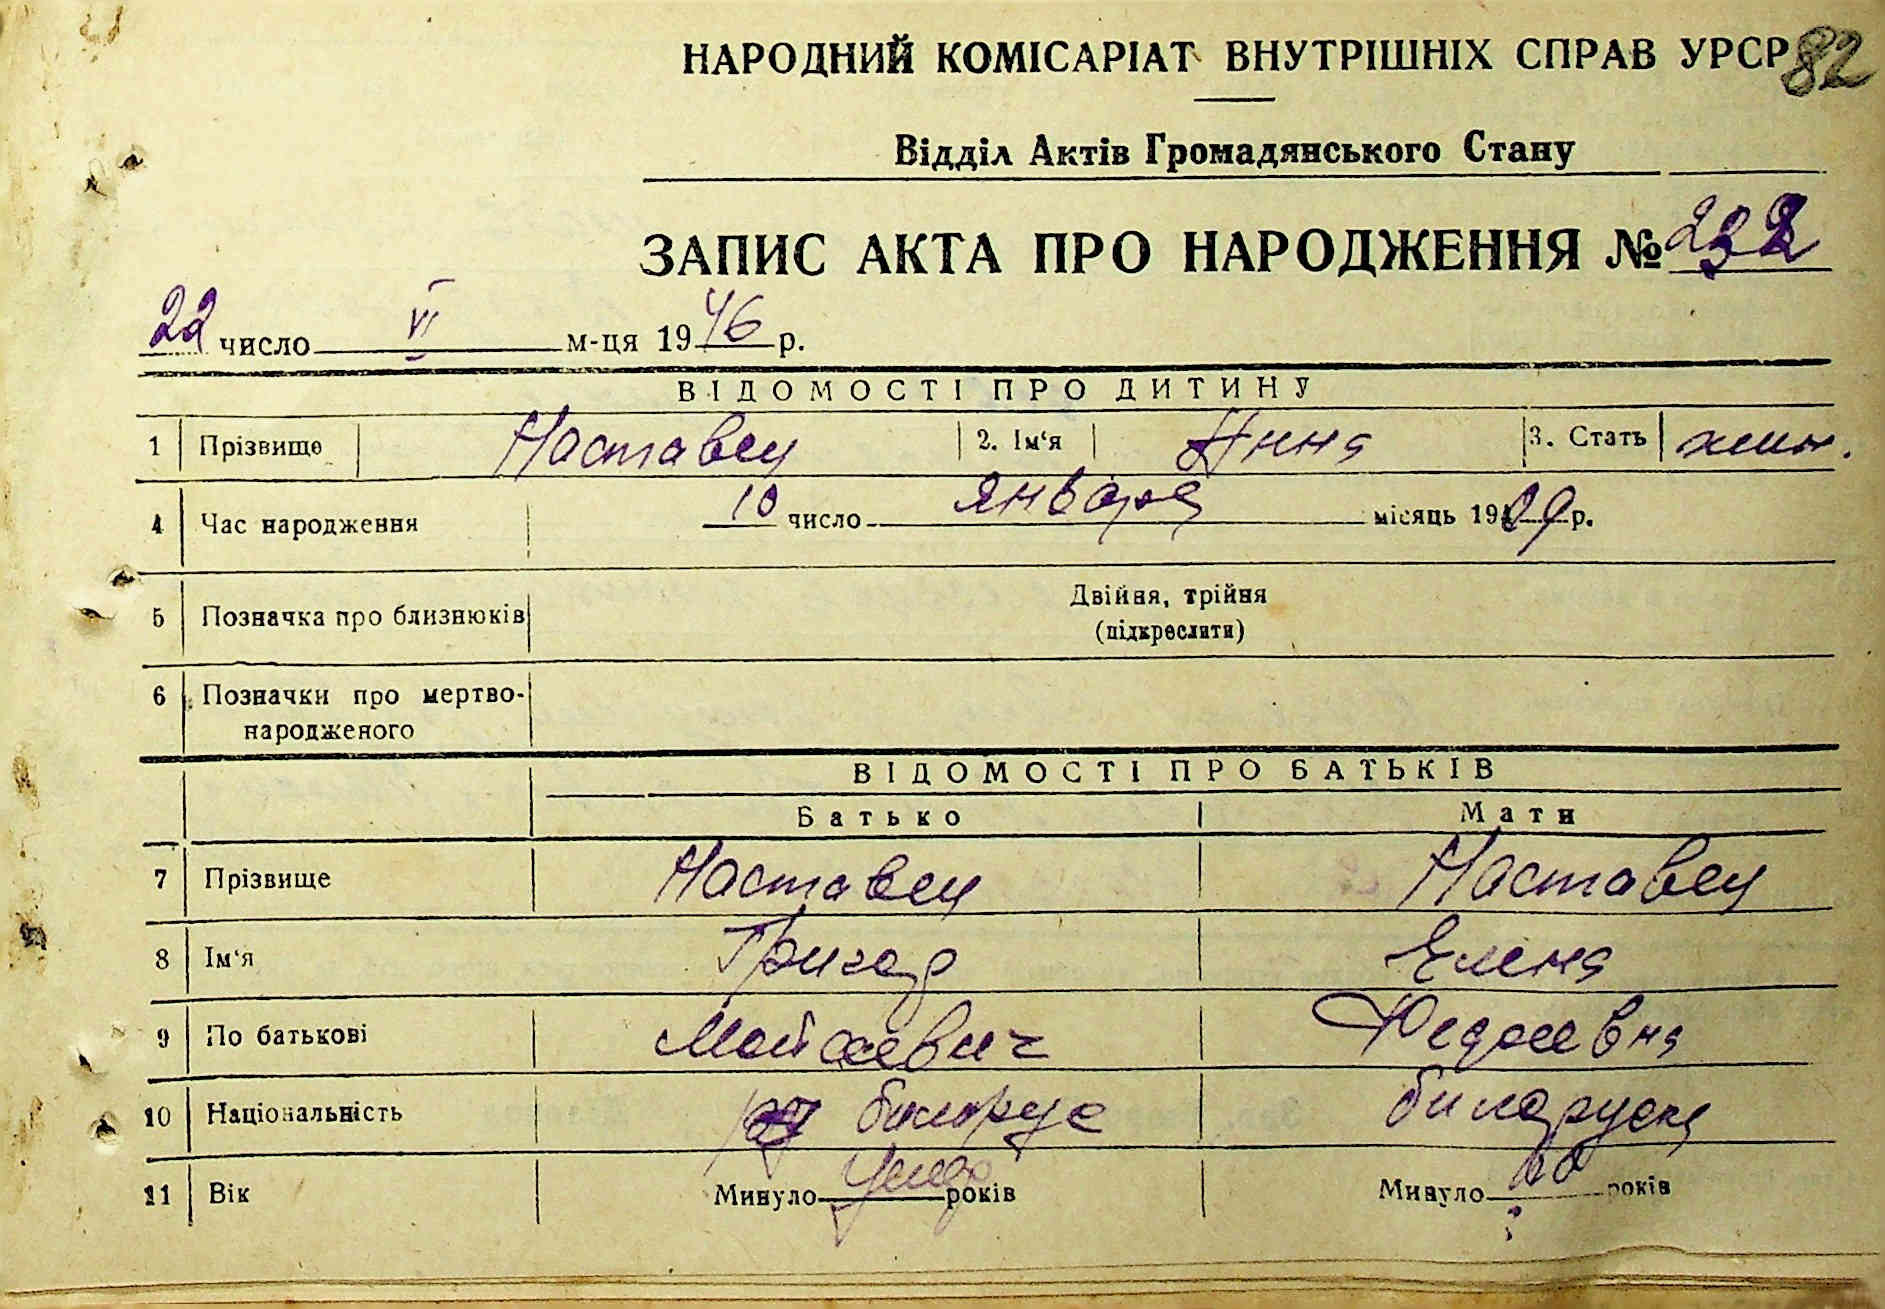 НАРОДНИЙ КОМІСАРІАТ ВНУТРІШНІХ СПРАВ УРСР 82
Відділ Актів Громадянського Стану
ЗАПИС АКТА ПРО НАРОДЖЕННЯ № 232
22 число VI м-ця 1946 р.
ВІДОМОСТІ ПРО ДИТИНУ
1 Прізвище Наставец 2. Ім‘я Нина 3. Стать жин.
4 Час народження 10 января число місяць 1929 р.
5 Позначка про близнюків Двійня, трійня
(підкреслити)
6 Позначки про мертво-
народженого
ВІДОМОСТІ ПРО БАТЬКІВ
Батько Мати
7 Прізвище Наставец Наставец
8 Ім‘я Григор Елена
9 По батькові Мойсеевич Федосевна
10 Національність билорус биларуска
11 Вік Минуло умер років Минуло років